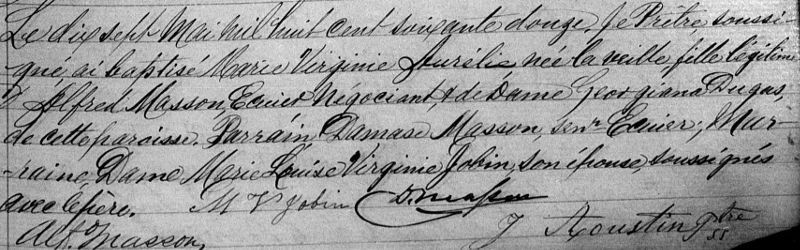 Le dix sept Mai mil huit cent soixante douze, Je Prêtre, soussi-
gné ai baptisé Marie Virginie Aurélie née la veille, fille légitime
d'Alfred Masson, Ecuier Négociant, & de Dame Georgiana Dugas,
de cette paroisse. Parrain Damase Masson, Senr Ecuier; Mar-
-raine, Dame Marie Louise Virginie Jobin, son épouse, soussignés
avec le père. M V Jobin D. Masson
Alf. Masson, J Roustin Ptre SS